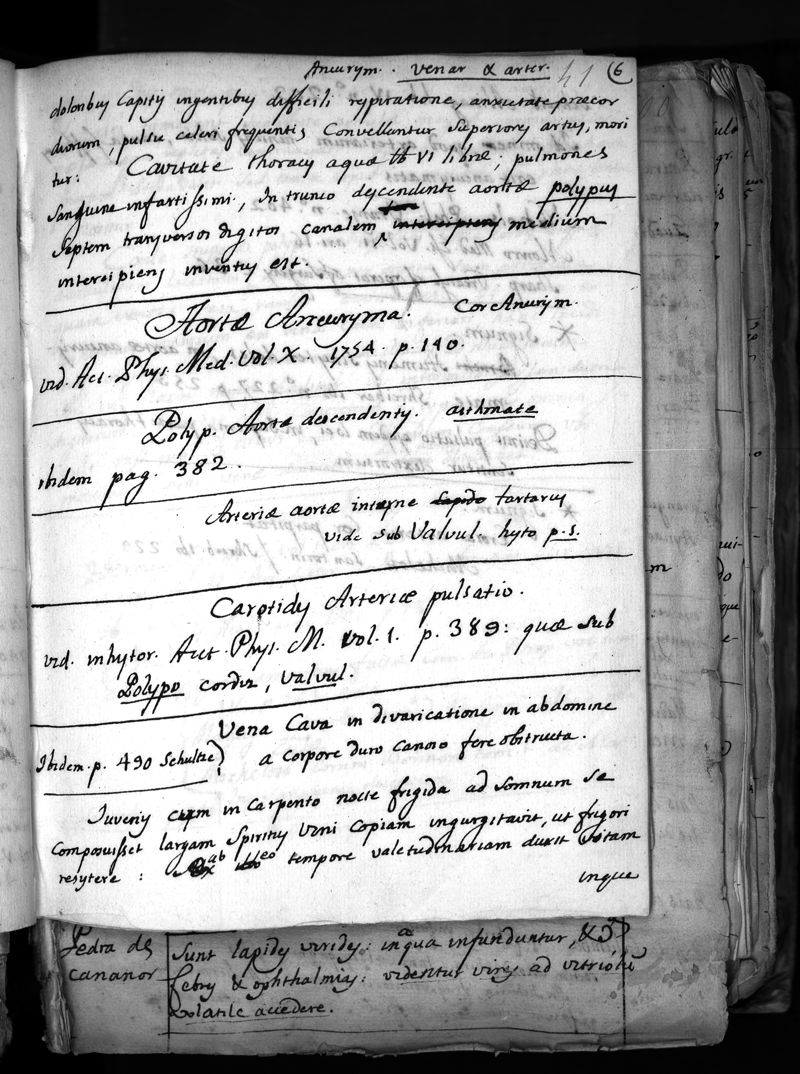 Aneurysm. venar & arter. 41 6
doloribus Capitis ingentibus difficili respiratione, anxietate præcor
diorum, pulsu celeri frequentis Convelluntur Superiores artus, mori
tur: Cavitate thoracis aquæ lb VI libræ; pulmones
Sanguine infartissimi, in trunco descendente aortæ polypus
Septem transversos digitos canalem intercipiens medium
intercipiens inventus est.
Aortæ Aneurysma. Cor Aneurysm.
vid. Act. Phys. Med. Vol. X 1754. p. 140.
Polyp. Aortæ descendentis. asthmate
ibidem pag. 382.
Arteriæ aortæ internæ tartarus
vide sub Valvul. hysto p. s.
Carotidis Arteriæ pulsatio.
vid. in hystor. Act. Phys. M. vol. 1. p. 389: quæ sub
Polypo cordis, valvul.
Vena Cava in divaricatione in abdomine
Ibidem. p. 490 Schultze) a corpore duro canoso fere obstructa.
Iuvenis cum in Carpento nocte frigida ad somnum se
Composuisset largam Spiritus Vini Copiam ingurgitavit, ut frigori
resystere: ab eo tempore valetudinariam duxit vitam
inque
Pedra de Cananor
Sunt lapides virides: in aqua infunduntur, &
febris & ophthalmias: videntur vires ad vitriolum
volatile accedere.